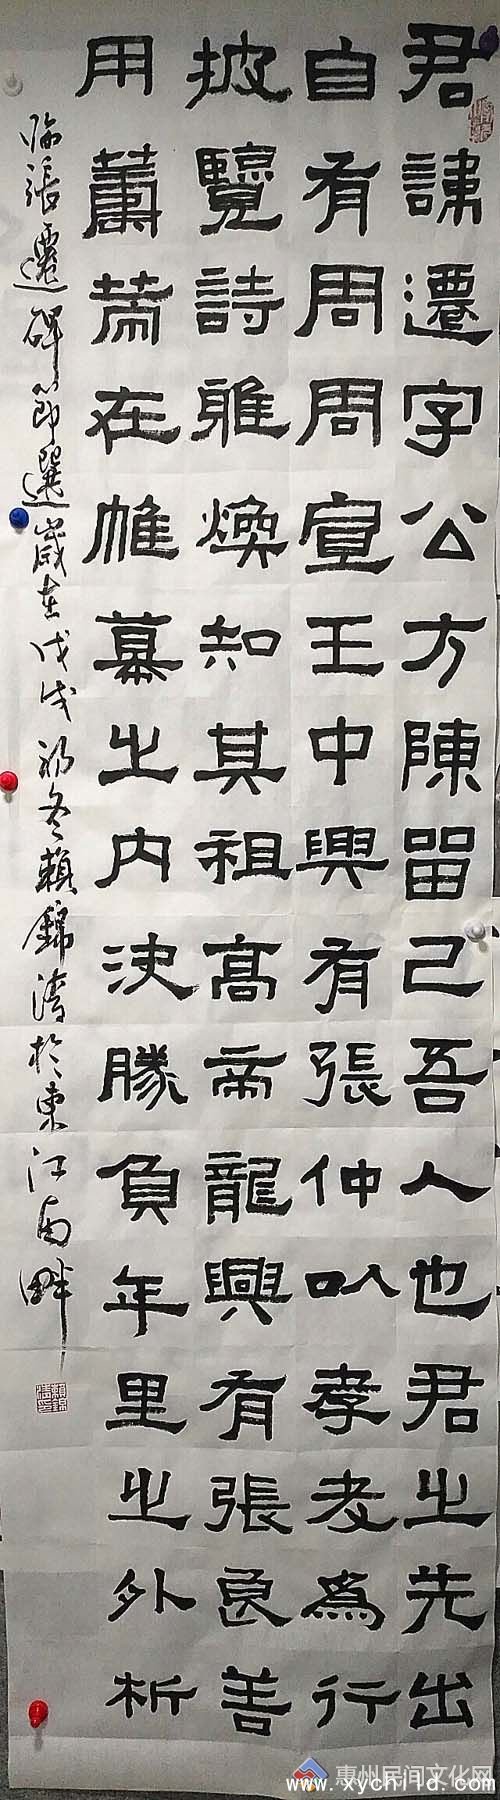 君諱遷字公方陳留己吾人也君之先出
自有周周宣王中興有張仲以孝友為行
披覽詩雅煥知其祖高帝龍興有張良善
用籌策在帷幕之内決勝負千里之外析
臨張遷碑節選歲在戊戌初冬賴錦濤於東江南畔
惠州民间文化网
www.xychild.com